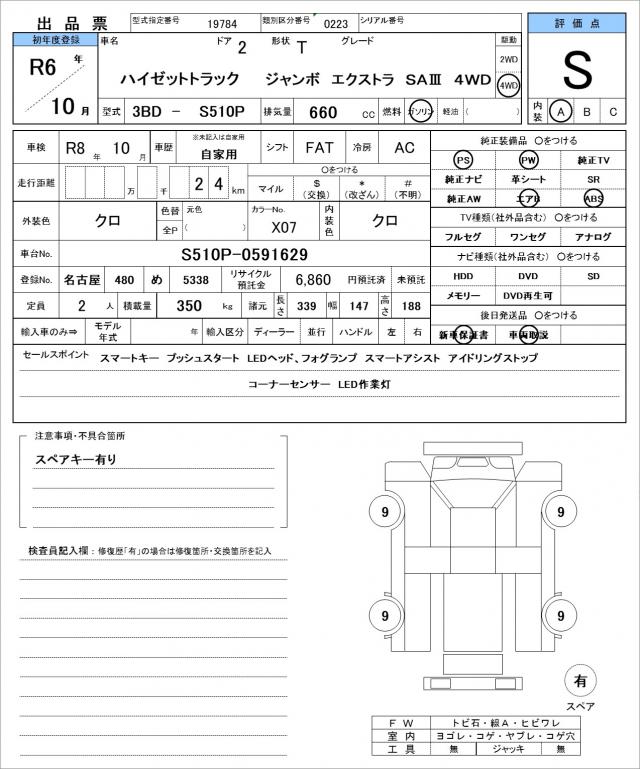 出品票 型式指定番号 19784 類別区分番号 0223 シリアル番号 評価点
初年度登録 車名 ドア 2 形状 T グレード 駆動
R6 年 2WD
ハイゼットトラック ジャンボ エクストラ SAⅢ 4WD 4WD S
10 月 型式 3BD - S510P 排気量 660 cc 燃料 ガソリン 軽油 ( ) 内装 A B C
車検 R8 年 10 月 車歴 ※未記入は自家用 自家用 シフト FAT 冷房 AC 純正装備品 〇をつける
PS PW 純正TV
走行距離 万 千 2 4 km 〇をつける
マイル $ (交換) * (改ざん) # (不明) 純正ナビ 革シート SR
純正AW エアB ABS
外装色 クロ 色替 元色 全P ( ) カラーNo. X07 内装色 クロ TV種類(社外品含む) 〇をつける
フルセグ ワンセグ アナログ
車台No. S510P-0591629 ナビ種類(社外品含む) 〇をつける
登録No. 名古屋 480 め 5338 リサイクル預託金 6,860 円預託済 未預託 HDD DVD SD
定員 2 人 積載量 350 kg 諸元 長さ 339 幅 147 高さ 188 メモリー DVD再生可
後日発送品 〇をつける
輸入車のみ⇒ モデル年式 年 輸入区分 ディーラー 並行 ハンドル 左 右 新車保証書 車両取説
セールスポイント スマートキー プッシュスタート LEDヘッド、フォグランプ スマートアシスト アイドリングストップ
コーナーセンサー LED作業灯
注意事項・不具合箇所
スペアキー有り
9 9
検査員記入欄：修復歴「有」の場合は修復箇所・交換箇所を記入
9 9
有
スペア
FW トビ石・線A・ヒビワレ
室内 ヨゴレ・コゲ・ヤブレ・コゲ穴
工具 無 ジャッキ 無